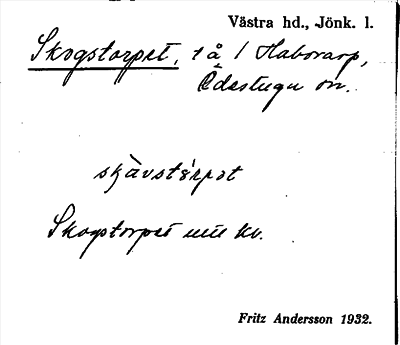 Västra hd., Jönk. l.
Skogstorpet, t å 1 Haborarp,
Ödestugu sn.
skåvstårpət
Skogstorpet
Fritz Andersson 1932.